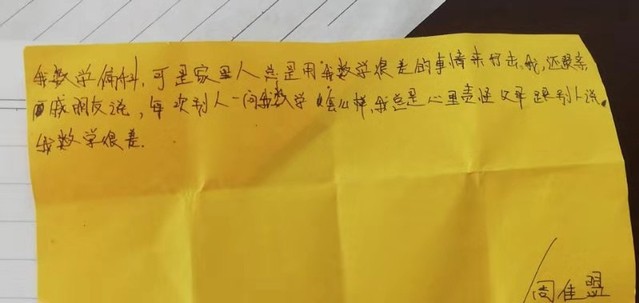 我数学偏科，可是家里人总是用我数学很差的事情来打击我，还跟亲
戚朋友说，每次别人一问我数学怎么样，我总是心里责怪父母跟别人说
我数学很差.
周佳盟